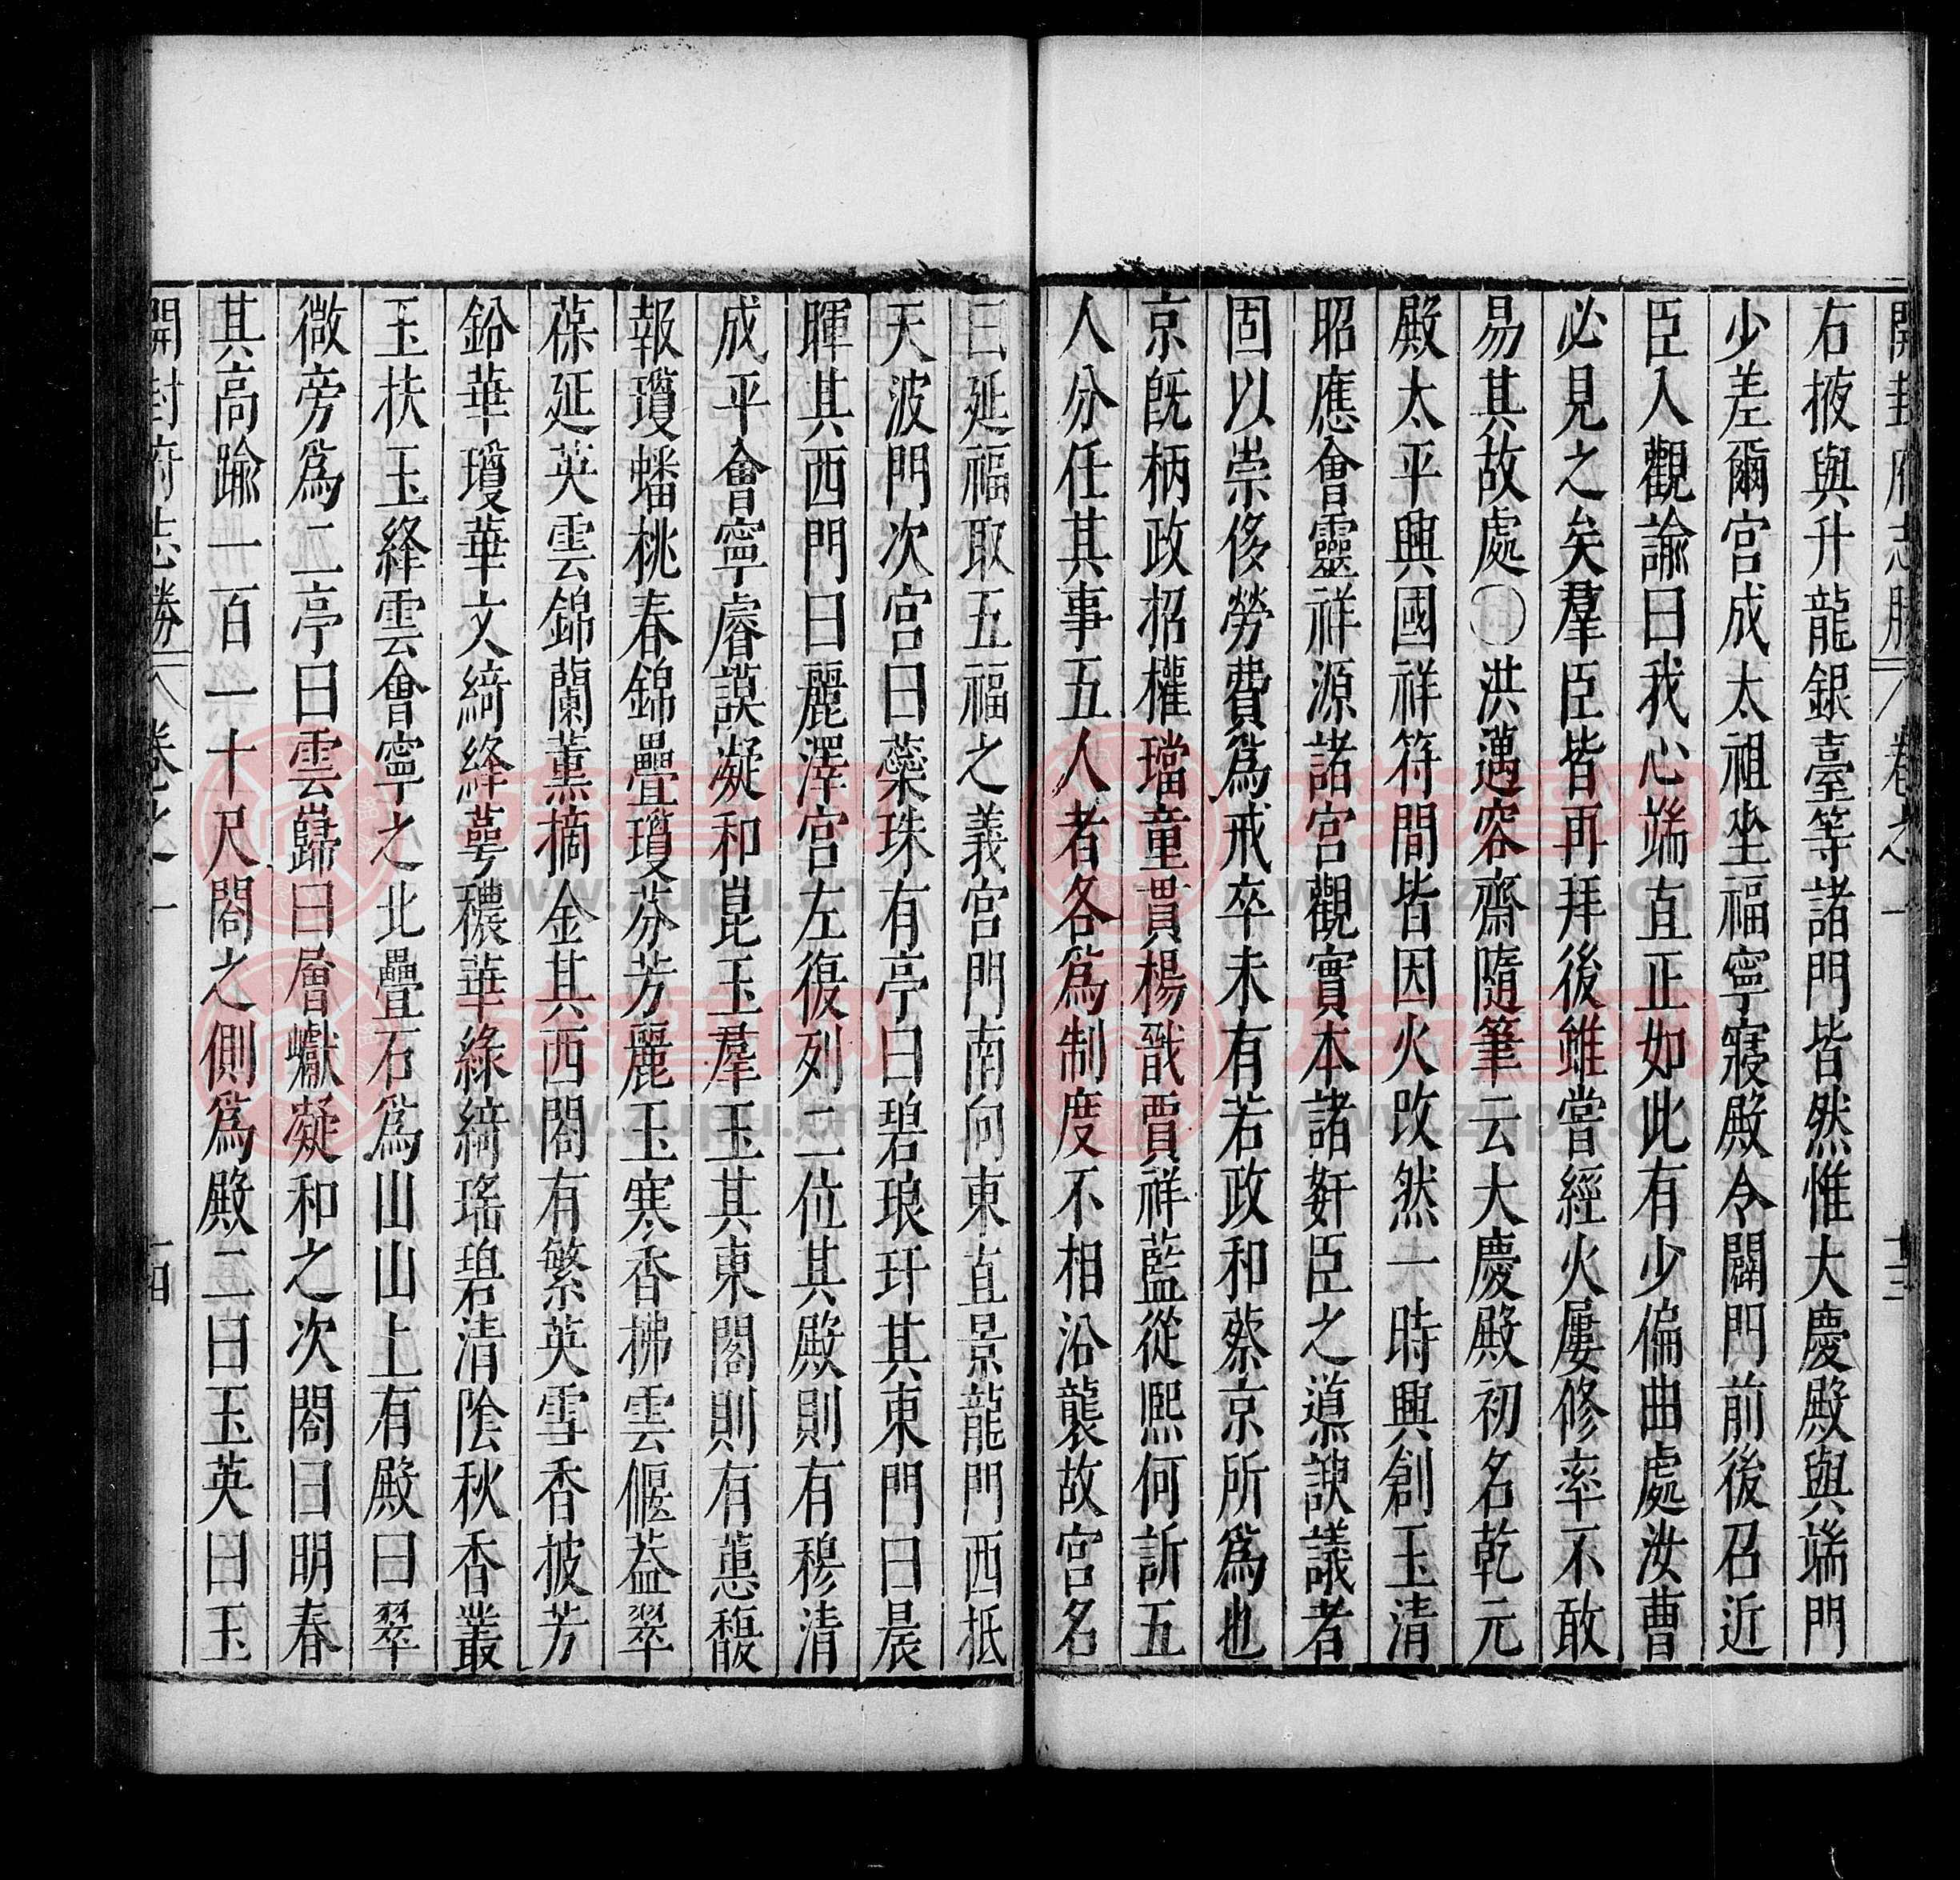 開封府志勝 卷之一 十三
右掖與升龍銀臺等諸門皆然惟大慶殿與端門
少差爾宮成太祖坐福寧寢殿令闢門前後召近
臣入觀諭曰我心端直正如此有少偏曲處汝曹
必見之矣羣臣皆再拜後雖嘗經火屢修率不敢
易其故處○洪邁容齋隨筆云大慶殿初名乾元
殿太平興國祥符間皆因火改然一時興創玉清
昭應會靈祥源諸宮觀實本諸姧臣之導諛議者
固以崇侈勞費為戒卒未有若政和蔡京所為也
京旣柄政招權璫童貫楊戩賈祥藍從熈何訢五
人分任其事五人者各為制度不相沿襲故宮名
曰延福取五福之義宮門南向東直景龍門西抵
天波門次宮曰蘂珠有亭曰碧琅玕其東門曰晨
暉其西門曰麗澤宮左復列二位其殿則有穆清
成平會寧睿謨凝和崑玉羣玉其東閣則有蕙馥
報瓊蟠桃春錦疊瓊芬芳麗玉寒香拂雲偃葢翠
葆延英雲錦蘭薰摘金其西閣有繁英雪香披芳
鉛華瓊華文綺絳萼穠華綠綺瑤碧清陰秋香叢
玉扶玉絳雲會寧之北疊石為山山上有殿曰翠
微旁為二亭曰雲巋曰層巘凝和之次閣曰明春
其高踰一百一十尺閣之側為殿二曰玉英曰玉
開封府志勝 卷之一 十四
族譜网
www.zupu.cn
族譜网
www.zupu.cn
族譜网
www.zupu.cn
族譜网
www.zupu.cn